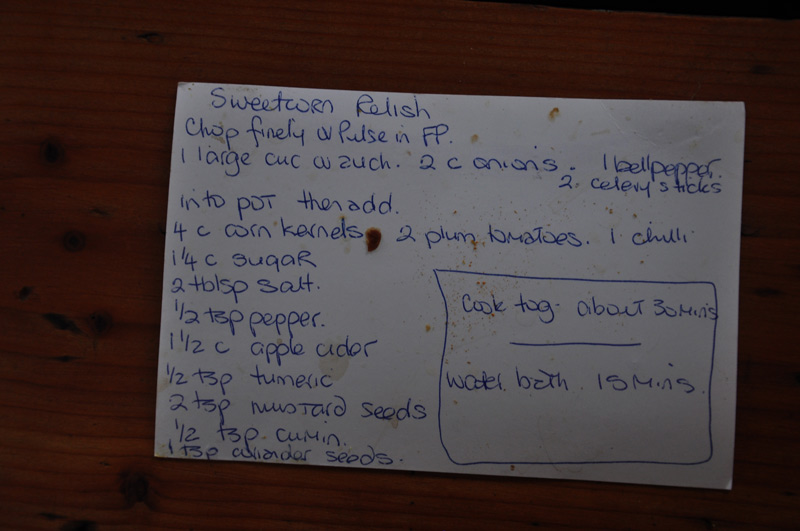 Sweetcorn Relish
Chop finely or Pulse in FP.
1 large cuc or zuch. 2 c onions. 1 bell pepper.
2 celery sticks
into pot then add.
4 c corn kernels 2 plum tomatoes. 1 chilli
1 1/4 c sugar
2 tblsp salt.
1/2 tsp pepper.
1 1/2 c apple cider
1/2 tsp tumeric
2 tsp mustard seeds
1/2 tsp cumin.
1 tsp coriander seeds.
Cook tog. about 30 mins
Water bath. 15 mins.